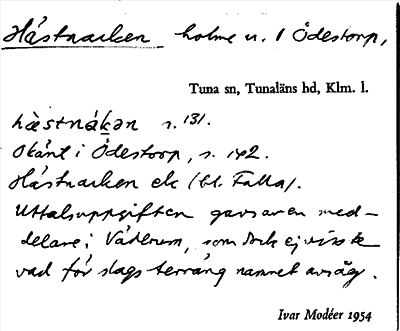 Hästnacken holme n. l Ödestorp,
Tuna sn, Tunaläns hd, Klm. l.
hæ̀stnákən s. 131.
Okänt i Ödestorp, s. 142.
Hästnacken ek (bl. Falla).
Uttalsuppgiften gavs av en med-
delare i Väderum, som dock ej visste
vad för slags terräng namnet avsåg.
Ivar Modéer 1954